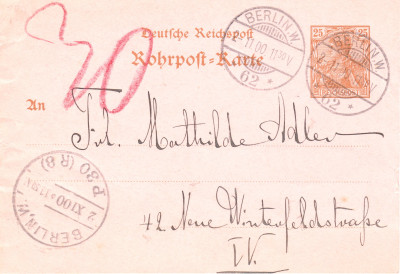 20
Deutsche Reichspost
Rohrpost-Karte
25 25
BERLIN, W
11 00 11 30 V
62 *
BERLIN, W
62 *
An
Frl. Mathilde Adler
42 Neue Winterfeldstraße
W.
BERLIN, W.
2 XI 00
P 30 (R 8)